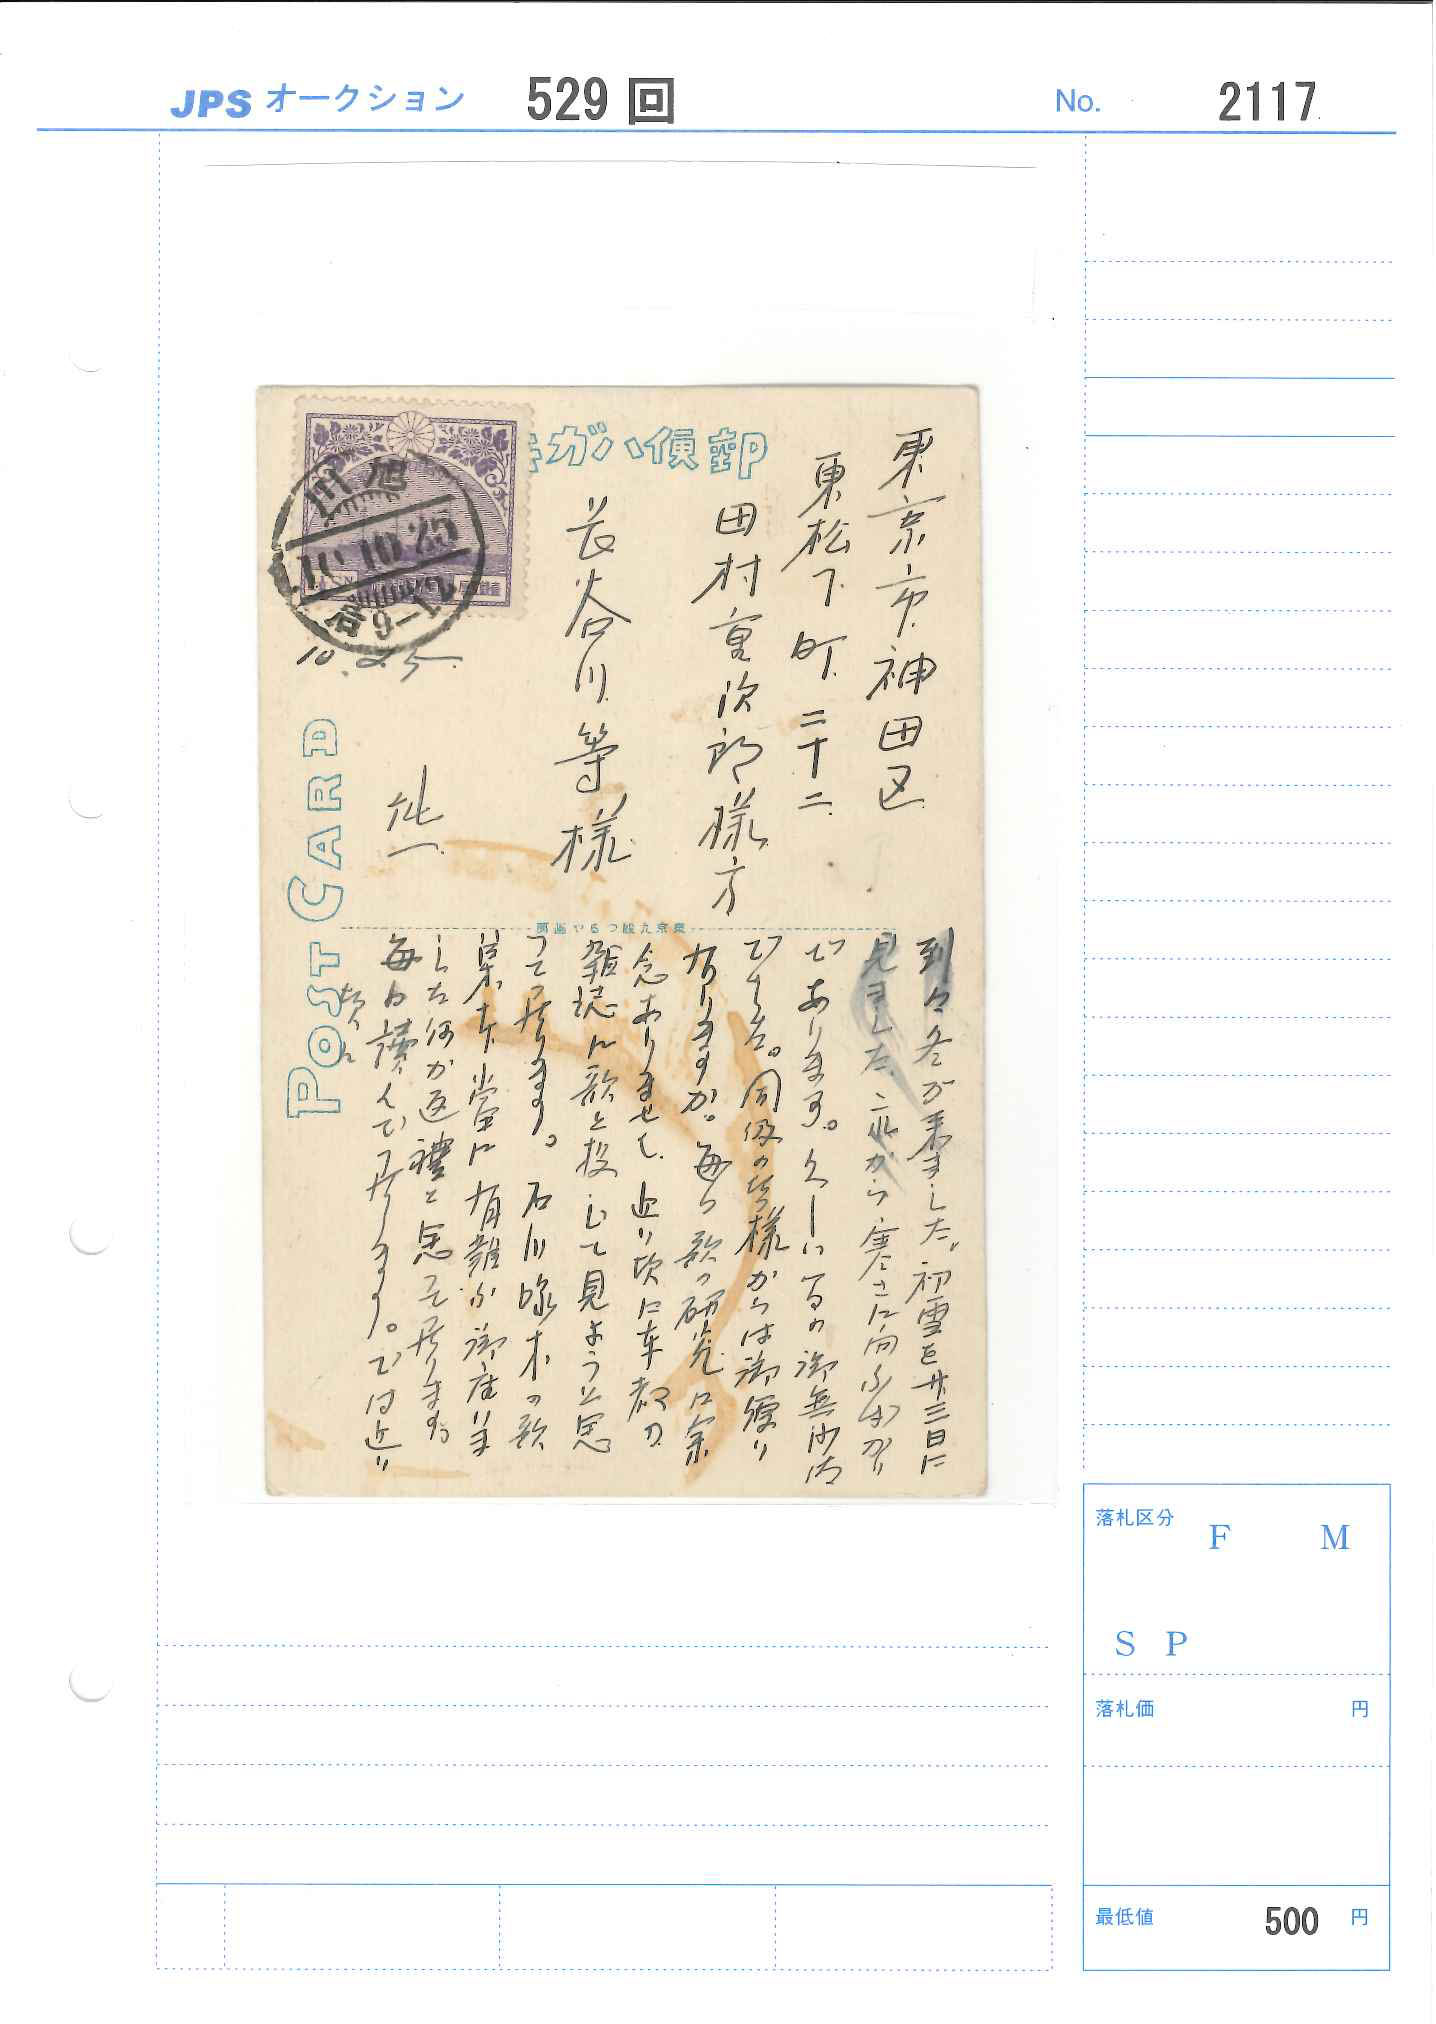 JPS オークション 529 回 No. 2117
郵便ハガキ
東京市神田区
東松下町二十二
田村重次郎様方
長谷川等様
旭川
10.10.25
10.25.
POST CARD
東京九段つるや画房
到々冬が来ました。初雪を廿三日に
見ました、之から寒さに向ふ
であります。久しい間の御無沙汰
でした。同級の皆様からは御便り
ありますか。毎日歌の研究に余
念ありません、近い内に東都の
雑誌に歌を投じて見ようと思
つて居ります。石川啄木の歌
集本当に有難ふ御座いま
した何か返礼と思つて居ります
毎日讀んで居ります。では近い
落札区分 F M
S P
落札価 円
最低値 500 円